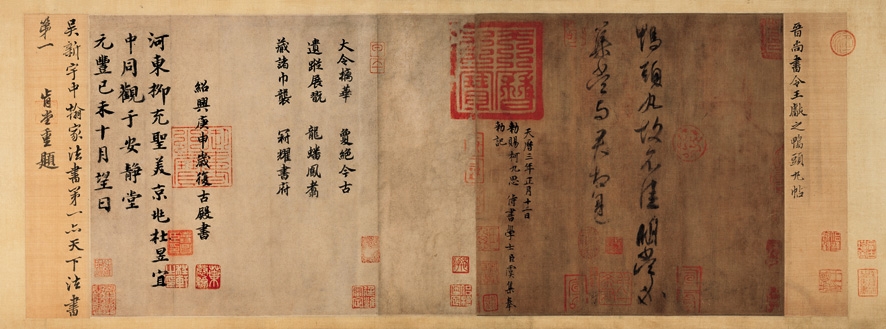 晉尚書令王獻之鴨頭丸帖
鴨頭丸故不佳明當必
集當與君相見
天曆三年正月十二日
勑賜柯九思侍書學士臣虞集奉
勑記
大令摛華夐絕今古
遺蹤展翫龍蟠鳳翥
藏諸巾襲冠耀書府
紹興庚申歲復古殿書
河東柳充聖美京兆杜昱宜
中同觀于安靜堂
元豐己未十月望日
吳新宇中翰家法書第一亦天下法書
第一 肯堂重題